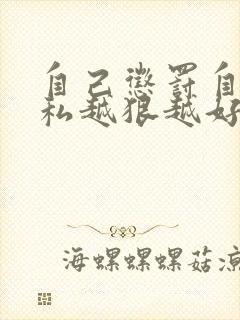 自己懲罰自
私越狠越好
海螺螺螺菇涼